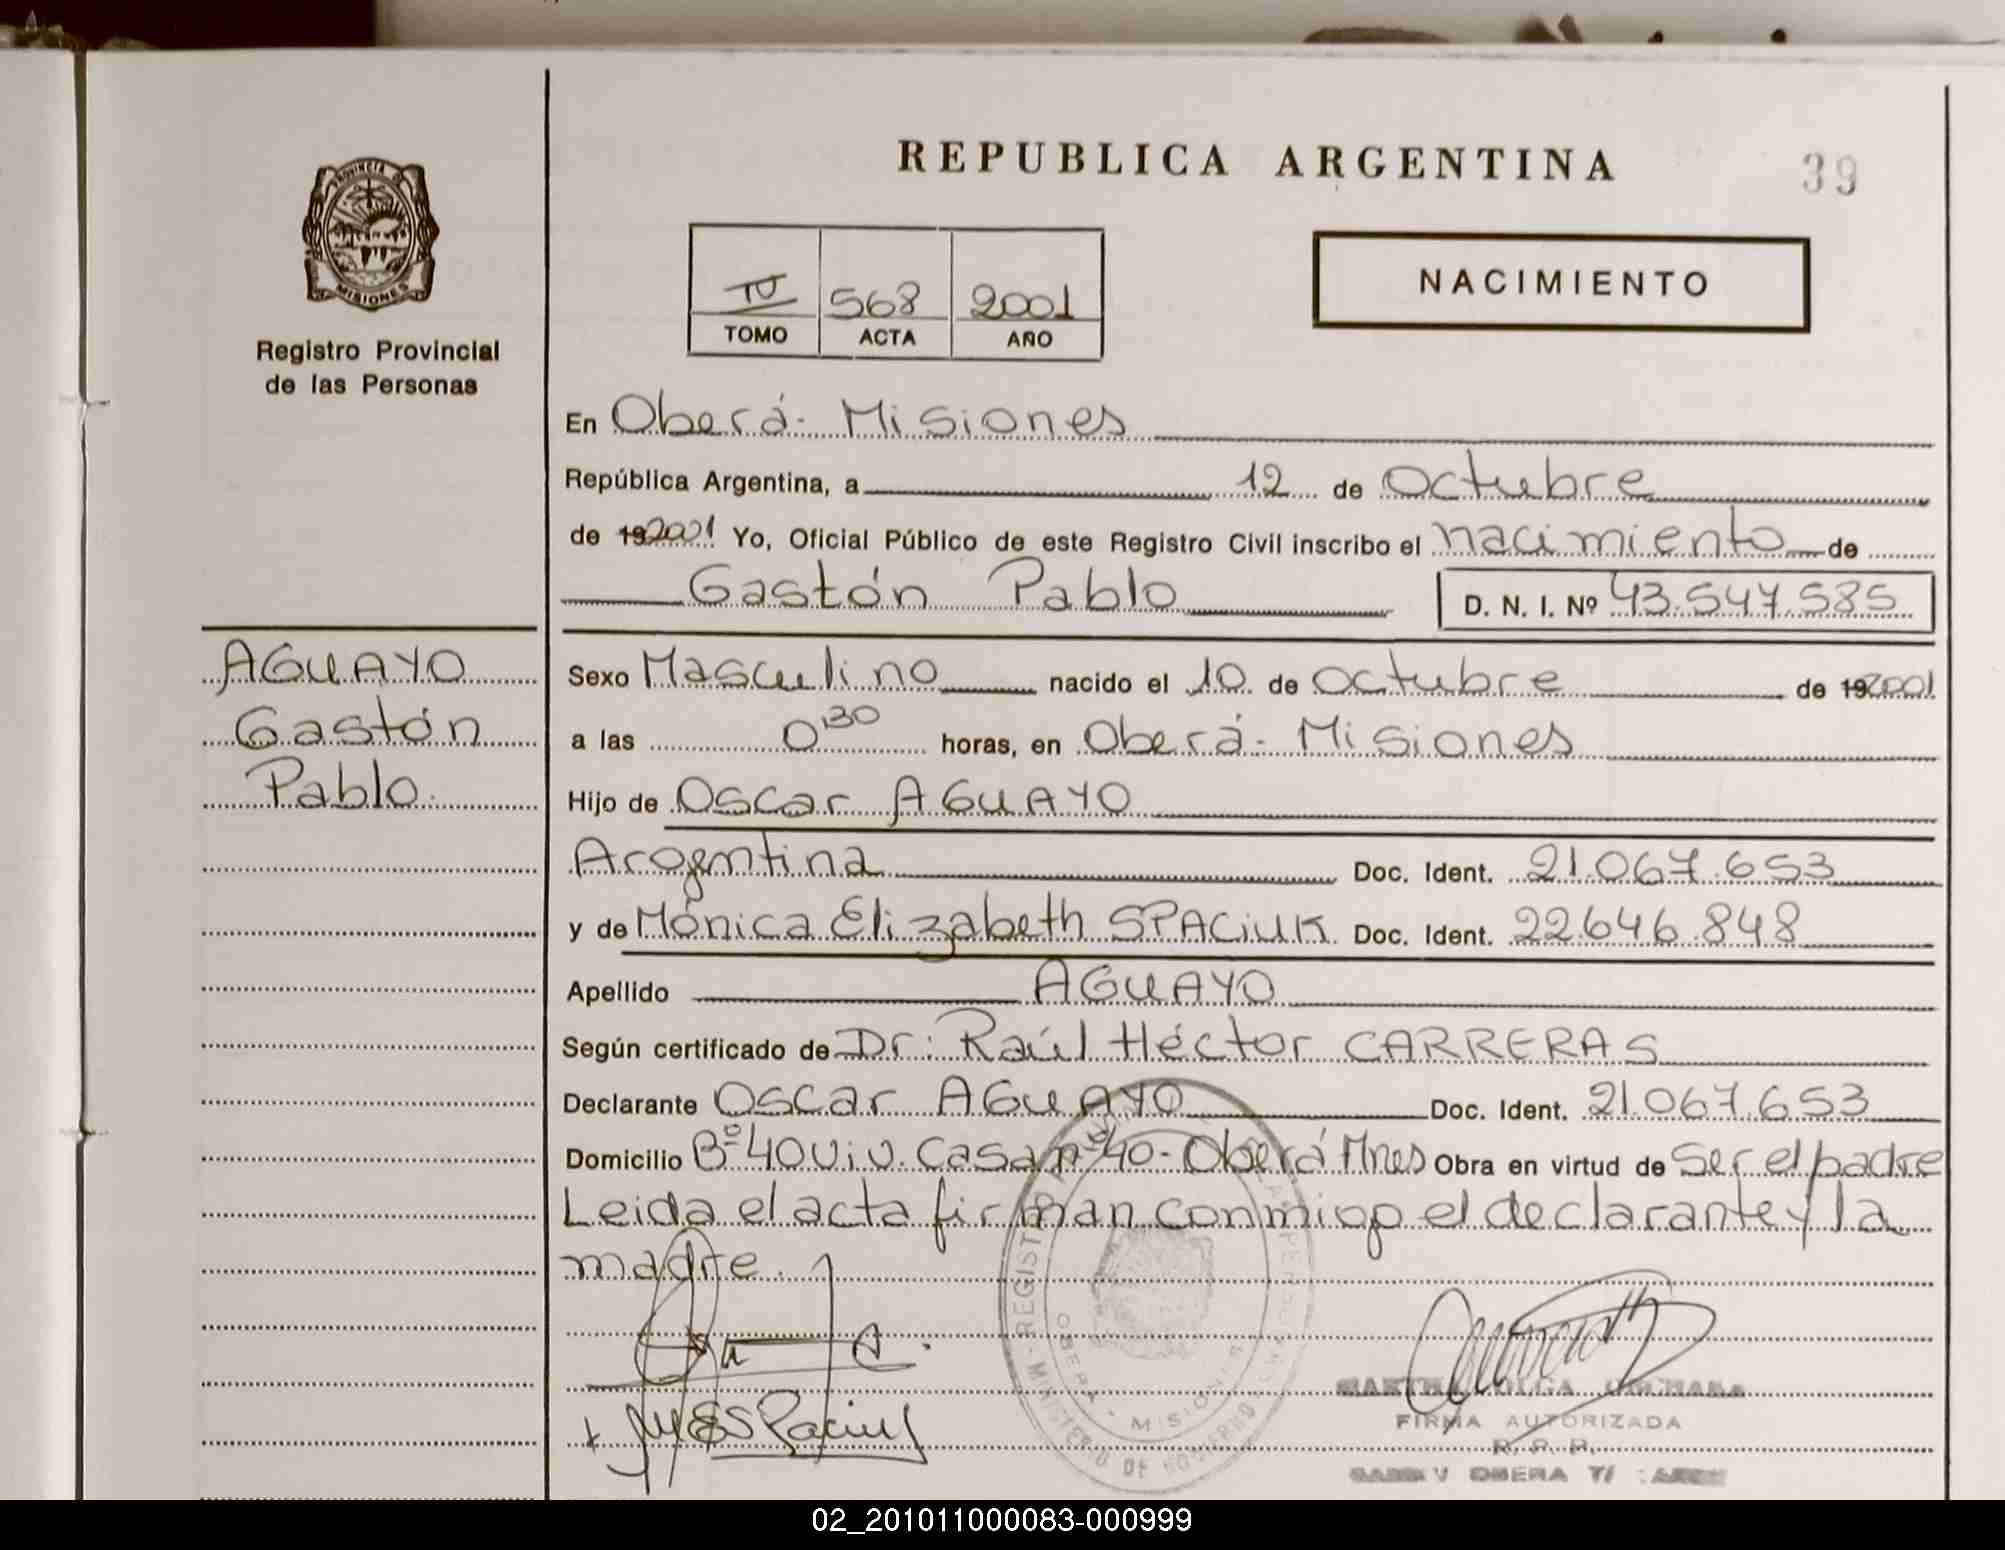 REPUBLICA ARGENTINA
39
PROVINCIA D
MISIONES
Registro Provincial
de las Personas
IV 568 2001
TOMO ACTA AÑO
NACIMIENTO
En Oberá - Misiones
República Argentina, a 12 de Octubre
de 19 2001 Yo, Oficial Público de este Registro Civil inscribo el nacimiento de
Gastón Pablo D. N. I. Nº 43.547.585
AGUAYO
Gastón
Pablo.
Sexo Masculino nacido el 10 de Octubre de 19 2001
a las 0:30 horas, en Oberá - Misiones
Hijo de Oscar AGUAYO
Argentina Doc. Ident. 21.067.653
y de Mónica Elizabeth SPACIUK Doc. Ident. 22.646.848
Apellido AGUAYO
Según certificado de Dr: Raúl Héctor CARRERAS
Declarante Oscar AGUAYO Doc. Ident. 21.067.653
Domicilio Bº 40 Viv. Casa nº 40 - Oberá Mnes Obra en virtud de ser el padre
Leida el acta firman conmigo el declarante y la
madre.
OBERA - MISIONES
MINISTERIO DE GOBIERNO
FIRMA AUTORIZADA
R. P. P.
OBERA
02_201011000083-000999